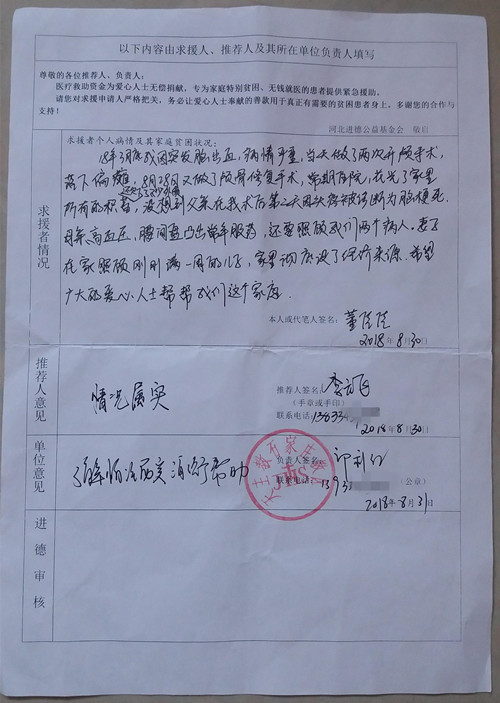 以下内容由求援人、推荐人及其所在单位负责人填写
尊敬的各位推荐人、负责人：
医疗救助资金为爱心人士无偿捐献，专为家庭特别贫困、无钱就医的患者提供紧急援助。
请您对求援申请人严格把关，务必让爱心人士奉献的善款用于真正有需要的贫困患者身上。多谢您的合作与
支持！
河北进德公益基金会 敬启
求援者情况
求援者个人病情及其家庭贫困状况：
18年3月底我因突发脑出血，病情严重，当天做了两次开颅手术，
落下偏瘫，8月28日又做了颅骨修复手术，常期住院，花光了家里
所有的积蓄，没想到父亲在我术后第二天因
诊断为脑梗死
母亲高血压，腰间盘凸出常年服药，还要照顾我们两个病人。妻子
在家照顾刚刚满一周的儿子，家里彻底没了经济来源。希望
广大的爱心人士帮帮我们这个家庭.
本人或代笔人签名：董
2018年8月30日
推荐人意见
情况属实
推荐人签名：李
（手章或手印）
联系电话：13633
2018年8月30日
单位意见
情况属实 请给予帮助
负责人签名：
联系电话：1393 （公章）
2018年8月31日
进德审核